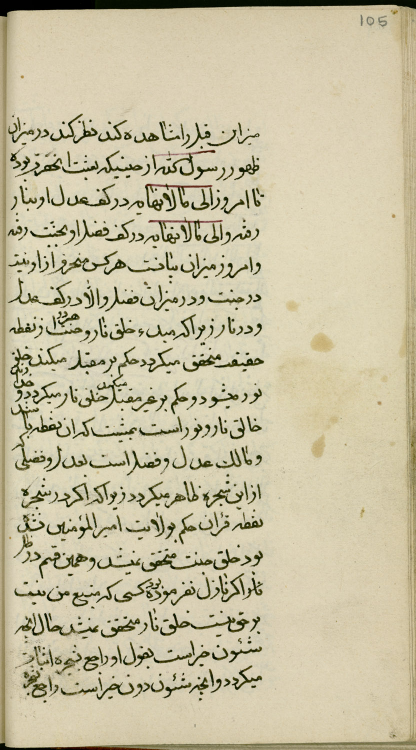 105
میزان قبل را مشاهده کند نظر کند در میزان
ظهور رسول الله از حینیکه بعثت آنحضرت بوده
تا امروز الی ما لا نهایه در کف عدل او بنار
رفته و الی ما لا نهایه در کف فضل او بجنت رفته
و امروز میزان بیانست هر کس منحرف از او نیست
در جنت و در میزان فضل و الا در کف عدل
و در نار زیرا که مبدء خلق نار و جنت هر دو از نقطه
حقیقت متحقق میگردد حکم بر مقبل میکند خلق
نور میشود و حکم بر غیر مقبل میکند خلق نار میگردد و
خالق نار و نور است بمشیت که آن نقطه باشد
و مالک عدل و فضل است بعدل و فضلی که
از این شجره ظاهر میگردد زیرا که اگر در شجره
نقطه قرآن حکم بولایت امیر المؤمنین نشده
بود خلق جنت متحقق نمیشد و همین قسم در نار
تا او اگر نازل نفرموده بود کسی که متبع من نیست
بر حق نیست خلق نار متحقق نمیشد حال آنچه
شئون خیر است بقول او راجع بشجره اثبات
میگردد و آنچه شئون دون خیر است راجع بشجره